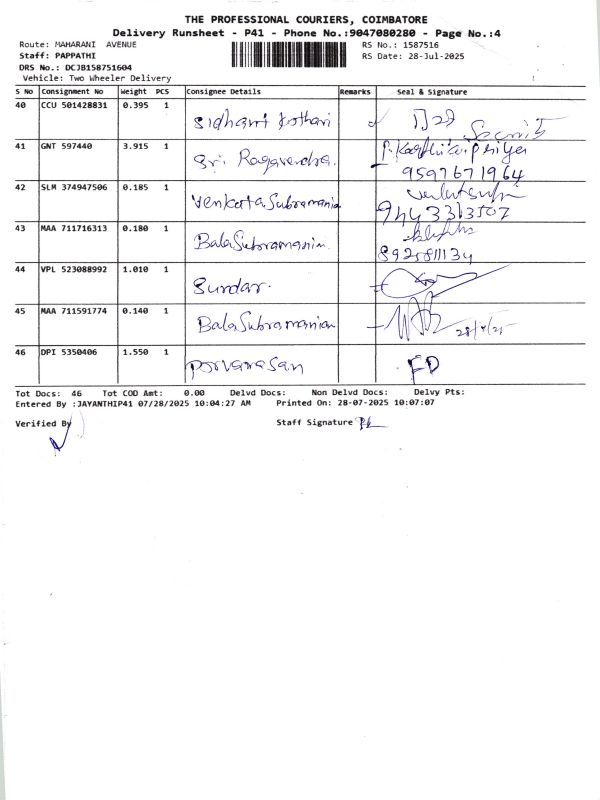 THE PROFESSIONAL COURIERS, COIMBATORE
Delivery Runsheet - P41 - Phone No.:9047080280 - Page No.:4
Route: MAHARANI AVENUE RS No.: 1587516
Staff: PAPPATHI RS Date: 28-Jul-2025
DRS No.: DCJB158751604
Vehicle: Two Wheeler Delivery
S No Consignment No Weight PCS Consignee Details Remarks Seal & Signature
40 CCU 501428831 0.395 1 Sidhant Kothari
41 GNT 597440 3.915 1 Sri Ragavendra. P. Karthikapriya
9597671964
42 SLM 374947506 0.185 1 Venkata Subramania
9443313507
43 MAA 711716313 0.180 1 Bala Subramanim.
8925811134
44 VPL 523088992 1.010 1 Sundar.
45 MAA 711591774 0.140 1 Bala Subramanian 28/7/25
46 DPI 5350406 1.550 1 FD
Tot Docs: 46 Tot COD Amt: 0.00 Delvd Docs: Non Delvd Docs: Delvy Pts:
Entered By :JAYANTHIP41 07/28/2025 10:04:27 AM Printed On: 28-07-2025 10:07:07
Verified By Staff Signature